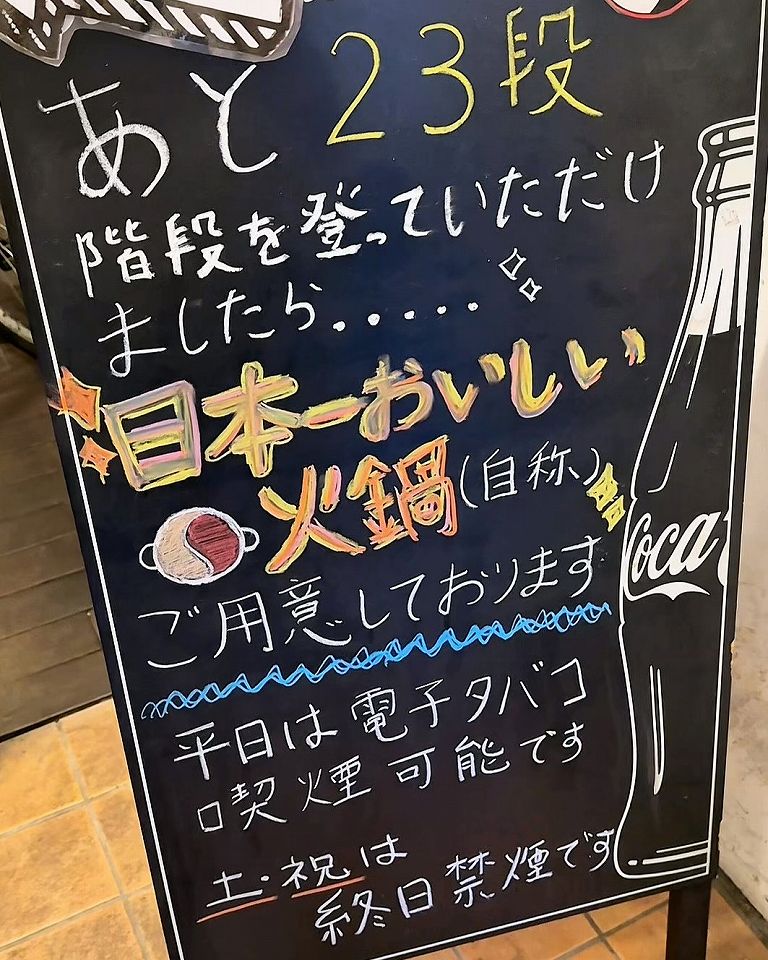 あと23段
階段を登っていただけ
ましたら.....
日本一おいしい
火鍋(自称)
ご用意しております
平日は電子タバコ
喫煙可能です
土・祝は
終日禁煙です
Coca